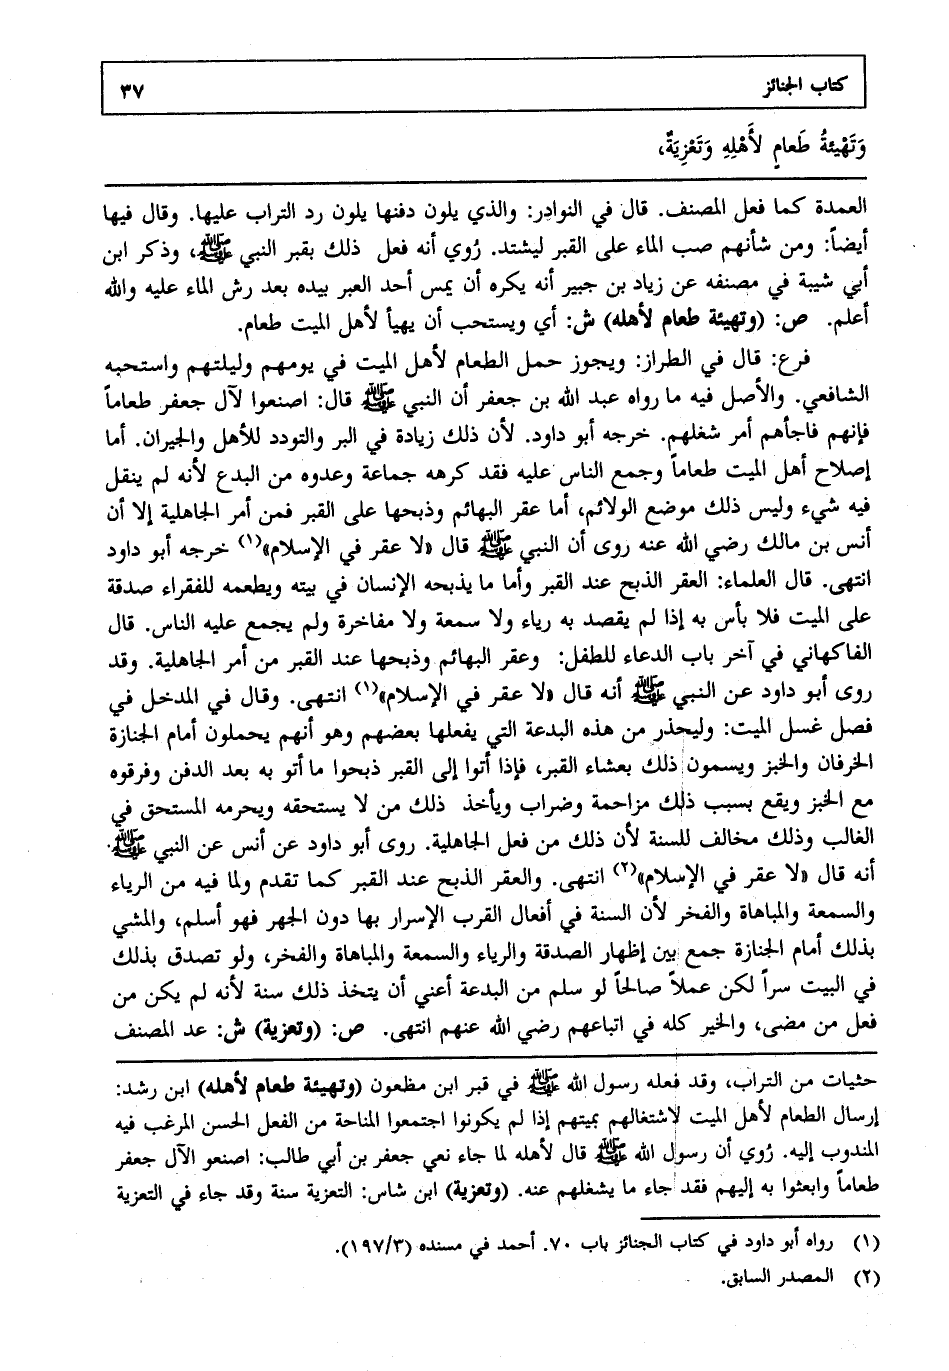 كتاب الجنائز ٣٧
وَتَهْيِئَةُ طَعامٍ لأَهْلِهِ وَتَعْزِيَةٌ،
العمدة كما فعل المصنف. قال في النوادِر: والذي يلون دفنها يلون رد التراب عليها. وقال فيها
أيضاً: ومن شأنهم صب الماء على القبر ليشتد. رُوي أنه فعل ذلك بقبر النبي ﷺ، وذكر ابن
أبي شيبة في مصنفه عن زياد بن جبير أنه يكره أن يمس أحد العبر بيده بعد رش الماء عليه والله
أعلم. ص: (وتهيئة طعام لأهله) ش: أي ويستحب أن يهيأ لأهل الميت طعام.
فرع: قال في الطراز: ويجوز حمل الطعام لأهل الميت في يومهم وليلتهم واستحبه
الشافعي. والأصل فيه ما رواه عبد الله بن جعفر أن النبي ﷺ قال: اصنعوا لآل جعفر طعاماً
فإنهم فاجأهم أمر شغلهم. خرجه أبو داود. لأن ذلك زيادة في البر والتودد للأهل والجيران. أما
إصلاح أهل الميت طعاماً وجمع الناس عليه فقد كرهه جماعة وعدوه من البدع لأنه لم ينقل
فيه شيء وليس ذلك موضع الولائم، أما عقر البهائم وذبحها على القبر فمن أمر الجاهلية إلا أن
أنس بن مالك رضي الله عنه روى أن النبي ﷺ قال «لا عقر في الإسلام»(١) خرجه أبو داود
انتهى. قال العلماء: العقر الذبح عند القبر وأما ما يذبحه الإنسان في بيته ويطعمه للفقراء صدقة
على الميت فلا بأس به إذا لم يقصد به رياء ولا سمعة ولا مفاخرة ولم يجمع عليه الناس. قال
الفاكهاني في آخر باب الدعاء للطفل: وعقر البهائم وذبحها عند القبر من أمر الجاهلية. وقد
روى أبو داود عن النبي ﷺ أنه قال «لا عقر في الإسلام»(١) انتهى. وقال في المدخل في
فصل غسل الميت: وليحذر من هذه البدعة التي يفعلها بعضهم وهو أنهم يحملون أمام الجنازة
الخرفان والخبز ويسمون ذلك بعشاء القبر، فإذا أتوا إلى القبر ذبحوا ما أتو به بعد الدفن وفرقوه
مع الخبز ويقع بسبب ذلك مزاحمة وضراب ويأخذ ذلك من لا يستحقه ويحرمه المستحق في
الغالب وذلك مخالف للسنة لأن ذلك من فعل الجاهلية. روى أبو داود عن أنس عن النبي ﷺ
أنه قال «لا عقر في الإسلام»(٢) انتهى. والعقر الذبح عند القبر كما تقدم ولما فيه من الرياء
والسمعة والمباهاة والفخر لأن السنة في أفعال القرب الإسرار بها دون الجهر فهو أسلم، والمشي
بذلك أمام الجنازة جمع بين إظهار الصدقة والرياء والسمعة والمباهاة والفخر، ولو تصدق بذلك
في البيت سراً لكن عملاً صالحاً لو سلم من البدعة أعني أن يتخذ ذلك سنة لأنه لم يكن من
فعل من مضى، والخير كله في اتباعهم رضي الله عنهم انتهى. ص: (وتعزية) ش: عد المصنف
حثيات من التراب، وقد فعله رسول الله ﷺ في قبر ابن مظعون (وتهيئة طعام لأهله) ابن رشد:
إرسال الطعام لأهل الميت لاشتغالهم بميتهم إذا لم يكونوا اجتمعوا المناحة من الفعل الحسن المرغب فيه
المندوب إليه. رُوي أن رسول الله ﷺ قال لأهله لما جاء نعي جعفر بن أبي طالب: اصنعو الآل جعفر
طعاماً وابعثوا به إليهم فقد جاء ما يشغلهم عنه. (وتعزية) ابن شاس: التعزية سنة وقد جاء في التعزية
(١) رواه أبو داود في كتاب الجنائز باب ٧٠. أحمد في مسنده (١٩٧/٣).
(٢) المصدر السابق.